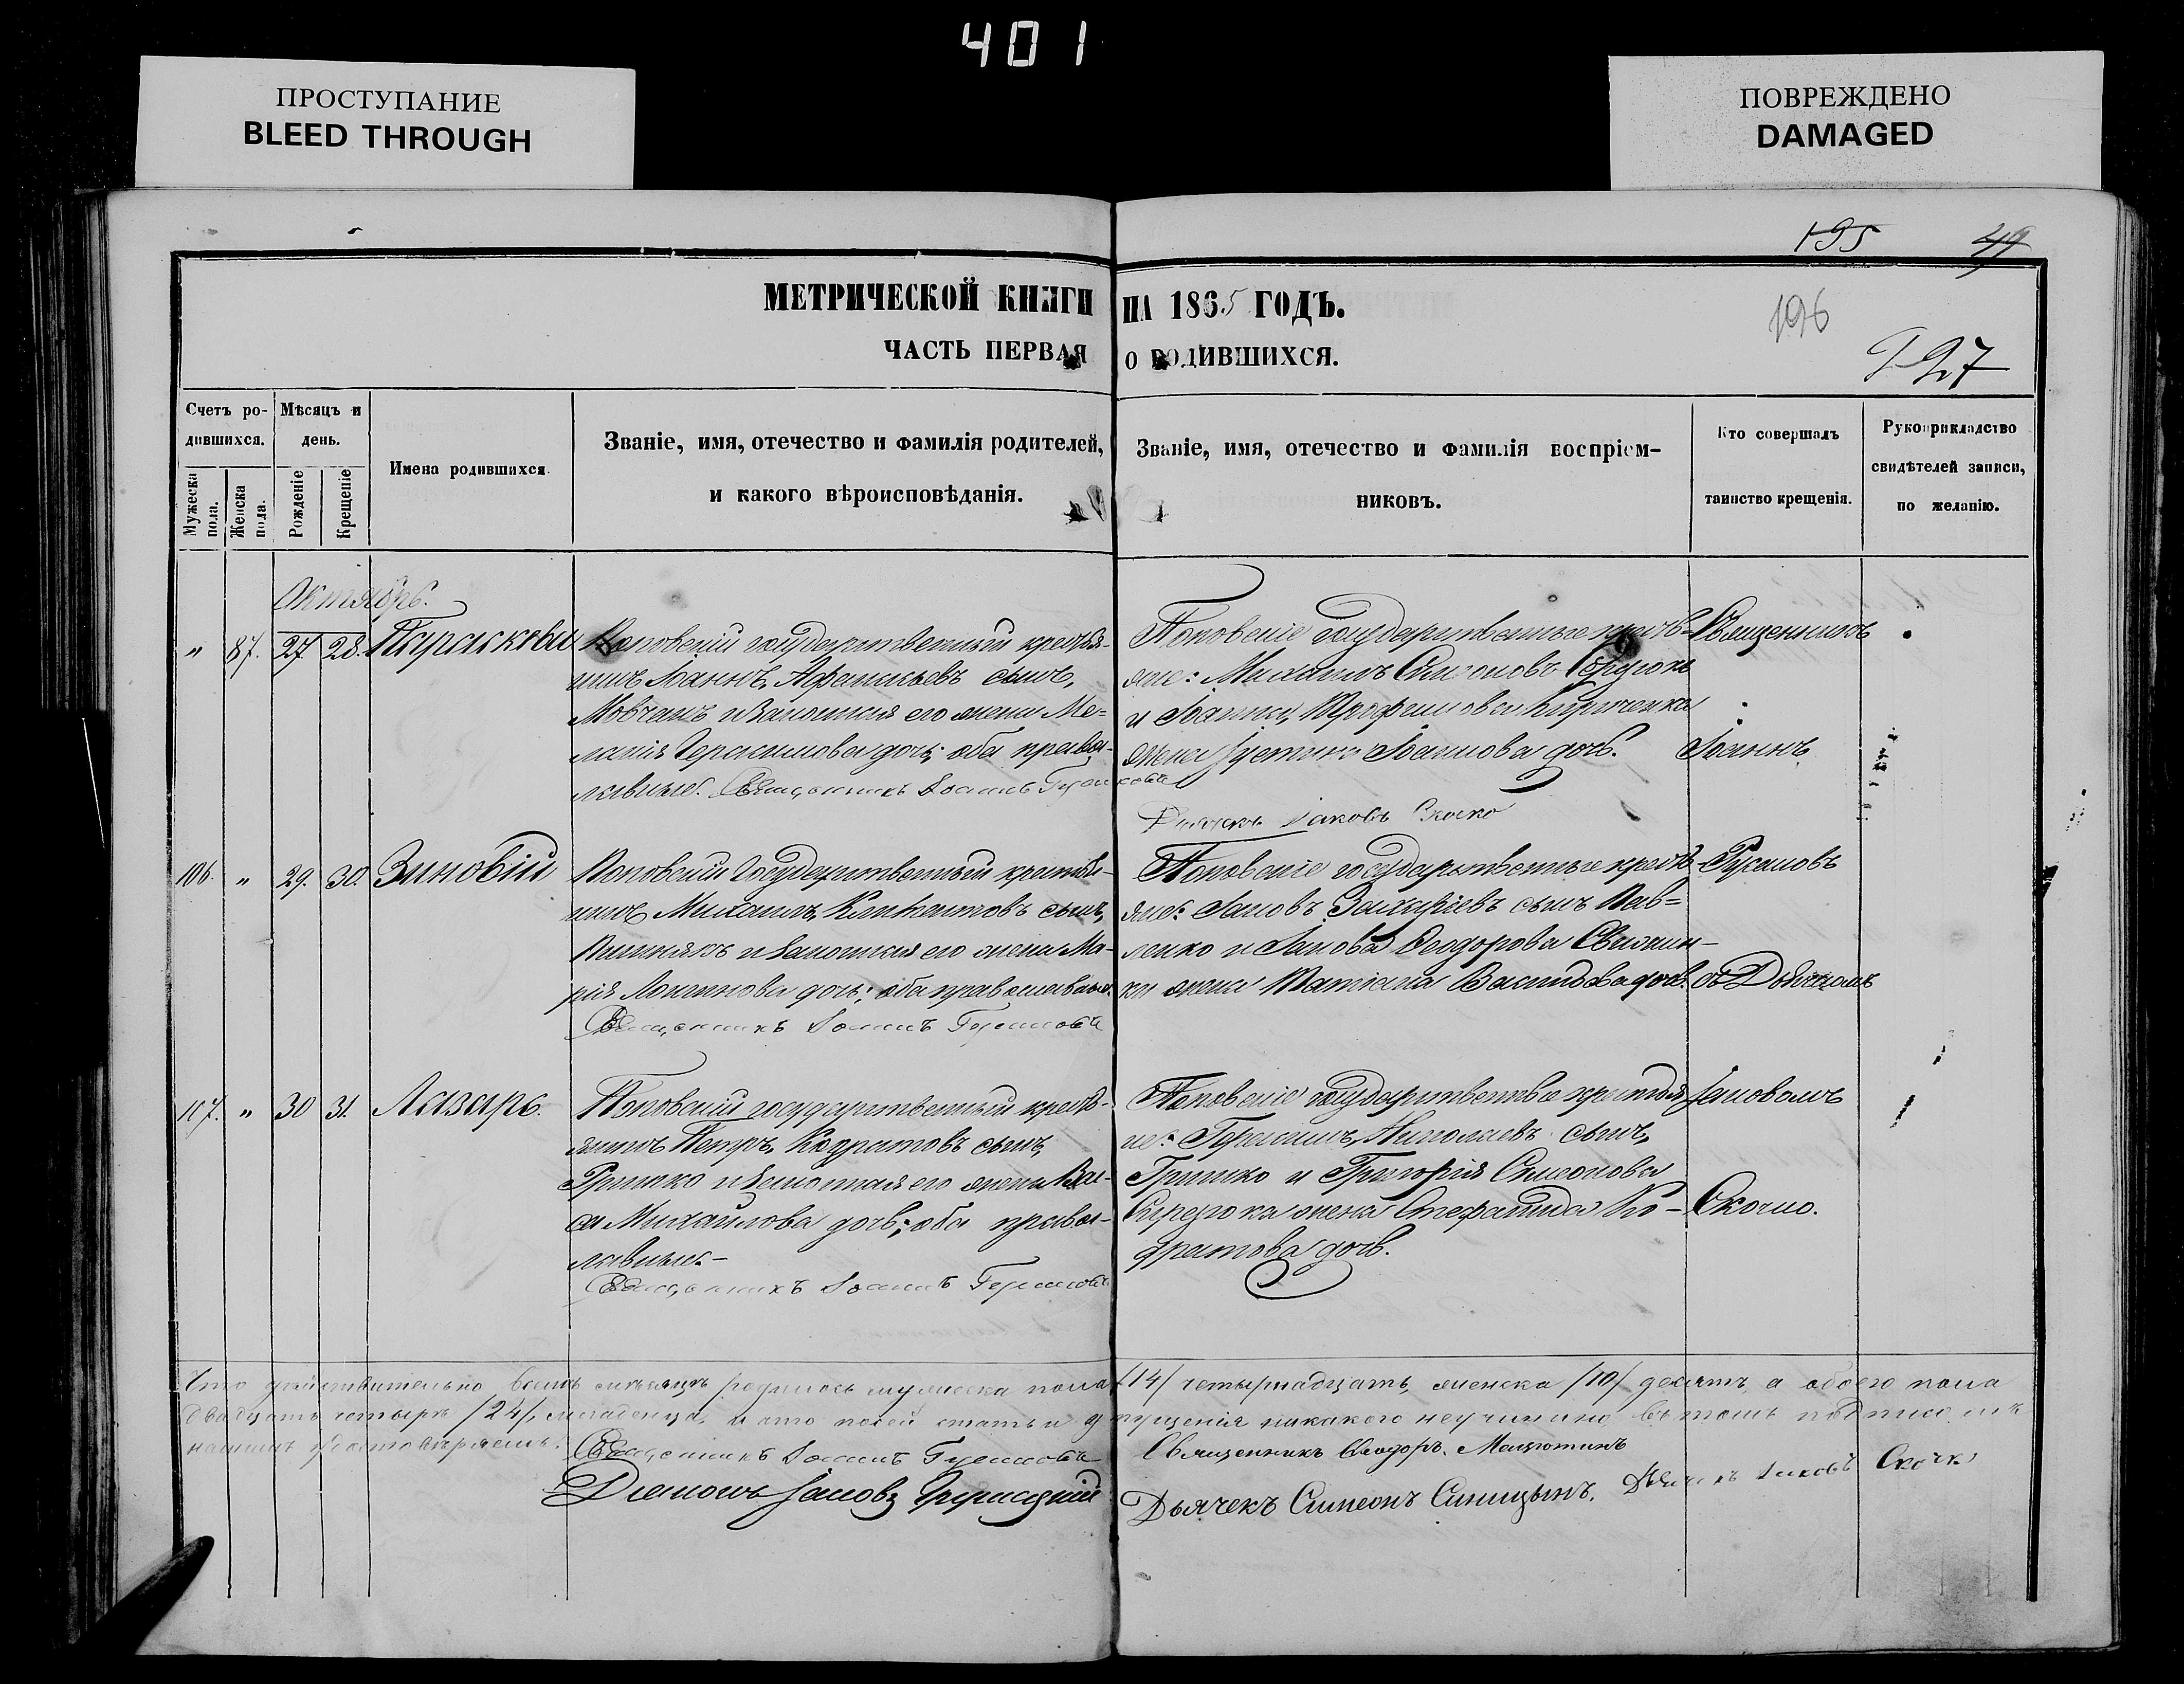 401
ПРОСТУПАНИЕ
BLEED THROUGH
ПОВРЕЖДЕНО
DAMAGED
195 49
МЕТРИЧЕСКОЙ КНИГИ НА 1865 ГОДЪ.
196
ЧАСТЬ ПЕРВАЯ О РОДИВШИХСЯ.
197
Счетъ родившихся.
Мужеска пола.
Женска пола.
Мѣсяцъ и день.
Рожденіе
Крещеніе
Имена родившихся.
Званіе, имя, отечество и фамилія родителей,
и какого вѣроисповѣданія.
Званіе, имя, отечество и фамилія воспріем-
никовъ.
Кто совершалъ
таинство крещенія.
Рукоприкладство
свидѣтелей записи,
по желанію.
Октябрь.
" 87. 27 28. Параскева
Поповскій государственный крестья-
нинъ Іоаннъ Афанасьевъ сынъ,
Мовчанъ и законная его жена Ме-
ланія Герасимова дочь; оба правос-
лавные. Священникъ Іоаннъ
Поповскіе государственные кресть-
яне: Михаилъ Симеоновъ
и Іоанна Трофимова Кириченка
жена Устина Іоаннова дочь.
Дьячекъ Іаковъ Скочко
Священникъ
Іоаннъ
106. " 29. 30. Зиновій
Поповскій Государственный крестья-
нинъ Михаилъ сынъ,
и законная его жена Ма-
рія дочь; оба православные.
Священникъ Іоаннъ
Поповскіе государственные кресть-
яне: Іаковъ Захаріевъ сынъ Пав-
ленко и Іакова Ѳеодорова
жена Татіана дочь.
съ Дьячкомъ
107. " 30 31. Лазарь.
Поповскій государственный кресть-
янинъ Петръ Кодратовъ сынъ,
Гришко и законная его жена Вас-
са Михайлова дочь; оба правос-
лавные.-
Священникъ Іоаннъ
Поповскіе государственные крестья-
не: Герасимъ Николаевъ сынъ,
Гришко и Григорія Симеонова
жена Стефанида Ко-
дратова дочь.
Іаковомъ
Скочко.
Что дѣйствительно всемъ мѣсяцѣ родилось мужеска пола /14/ четырнадцать, женска /10/ десять, а обоего пола
двадцать четыре /24/, младенца, и что по сей статьи опущенія никакого неучинено въ томъ подписомъ
нашимъ удостовѣряемъ.
Священникъ Іоаннъ
Священникъ Ѳеодоръ
Діаконъ Іаковъ
Дьячекъ Симеонъ Синицынъ. Дьячекъ Іаковъ Скочко